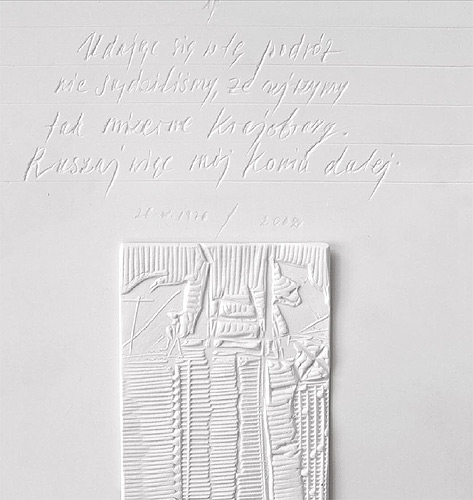 Udając się w tę podróż
nie sądziliśmy, że ujrzymy
tak mizerne krajobrazy.
Ruszaj więc mój koniu dalej.